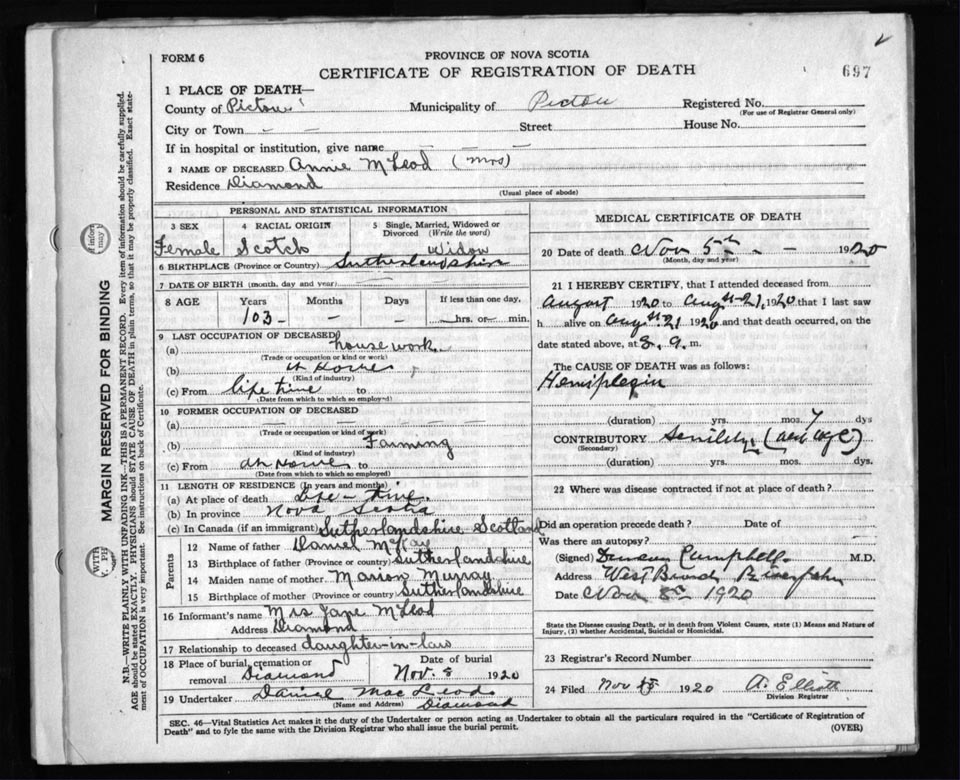 FORM 6
PROVINCE OF NOVA SCOTIA
CERTIFICATE OF REGISTRATION OF DEATH
697
1 PLACE OF DEATH—
County of Pictou Municipality of Pictou Registered No.
(For use of Registrar General only)
City or Town - - Street House No.
If in hospital or institution, give name
2 NAME OF DECEASED Annie McLeod (Mrs)
Residence Diamond
(Usual place of abode)
PERSONAL AND STATISTICAL INFORMATION
3 SEX 4 RACIAL ORIGIN 5 Single, Married, Widowed or Divorced (Write the word)
Female Scotch Widow
6 BIRTHPLACE (Province or Country) Sutherlandshire
7 DATE OF BIRTH (month, day and year)
8 AGE Years Months Days If less than one day,
103 - - hrs. or min.
9 LAST OCCUPATION OF DECEASED
(a) housework
(Trade or occupation or kind or work)
(b) at Home
(Kind of industry)
(c) From life time to
(Date from which to which so employed)
10 FORMER OCCUPATION OF DECEASED
(a)
(Trade or occupation or kind of work)
(b) Farming
(Kind of industry)
(c) From at Home to
(Date from which to which so employed)
11 LENGTH OF RESIDENCE (In years and months)
(a) At place of death Life-time
(b) In province Nova Scotia
(c) In Canada (if an immigrant) Sutherlandshire Scotland
Parents
12 Name of father Daniel McKay
13 Birthplace of father (Province or country) Sutherlandshire
14 Maiden name of mother Marion Murray
15 Birthplace of mother (Province or country) Sutherlandshire
16 Informant's name Mrs Jane McLeod
Address Diamond
17 Relationship to deceased daughter-in-law
18 Place of burial, cremation or removal Diamond Date of burial Nov. 8 1920
19 Undertaker Daniel MacLeod
(Name and Address) Diamond
MEDICAL CERTIFICATE OF DEATH
20 Date of death Nov 5th - - 1920
(Month, day and year)
21 I HEREBY CERTIFY, that I attended deceased from
August 1920 to Augst 21, 1920 that I last saw
h alive on Augst 21 1920 and that death occurred, on the
date stated above, at 8. 9. m.
The CAUSE OF DEATH was as follows:
Hemiplegia
(duration) yrs. mos. 7 dys
CONTRIBUTORY Senility (old age)
(Secondary)
(duration) yrs. mos. dys.
22 Where was disease contracted if not at place of death?
Did an operation precede death? Date of
Was there an autopsy?
(Signed) Duncan Campbell M.D.
Address West Branch
Date Nov 8th 1920
State the Disease causing Death, or in death from Violent Causes, state (1) Means and Nature of Injury, (2) whether Accidental, Suicidal or Homicidal.
23 Registrar's Record Number
24 Filed Nov 1920 A. Elliott
Division Registrar
SEC. 46—Vital Statistics Act makes it the duty of the Undertaker or person acting as Undertaker to obtain all the particulars required in the "Certificate of Registration of
Death" and to fyle the same with the Division Registrar who shall issue the burial permit. (OVER)
MARGIN RESERVED FOR BINDING
N.B.—WRITE PLAINLY WITH UNFADING INK—THIS IS A PERMANENT RECORD. Every item of information should be carefully supplied.
AGE should be stated EXACTLY. PHYSICIANS should STATE CAUSE OF DEATH in plain terms, so that it may be properly classified. Exact statement of OCCUPATION is very important. See instructions on back of Certificate.